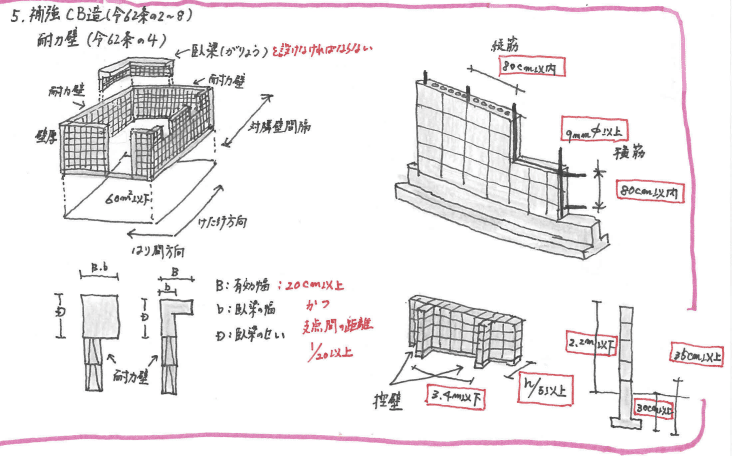 5. 補強CB造(令62条の2~8)
耐力壁(令62条の4)
臥梁(がりょう)を設けなければならない
耐力壁
耐力壁
壁厚
対隣壁間隔
60m²以下
けた行方向
はり間方向
縦筋
80cm以内
9mmφ以上
横筋
80cm以内
B.b
D
B
b
D
耐力壁
B:有効幅:20cm以上
b:臥梁の幅 かつ
D:臥梁のせい 支点間の距離
1/20以上
控壁
3.4m以下
h/5以上
2.2m以下
35cm以上
30cm以上